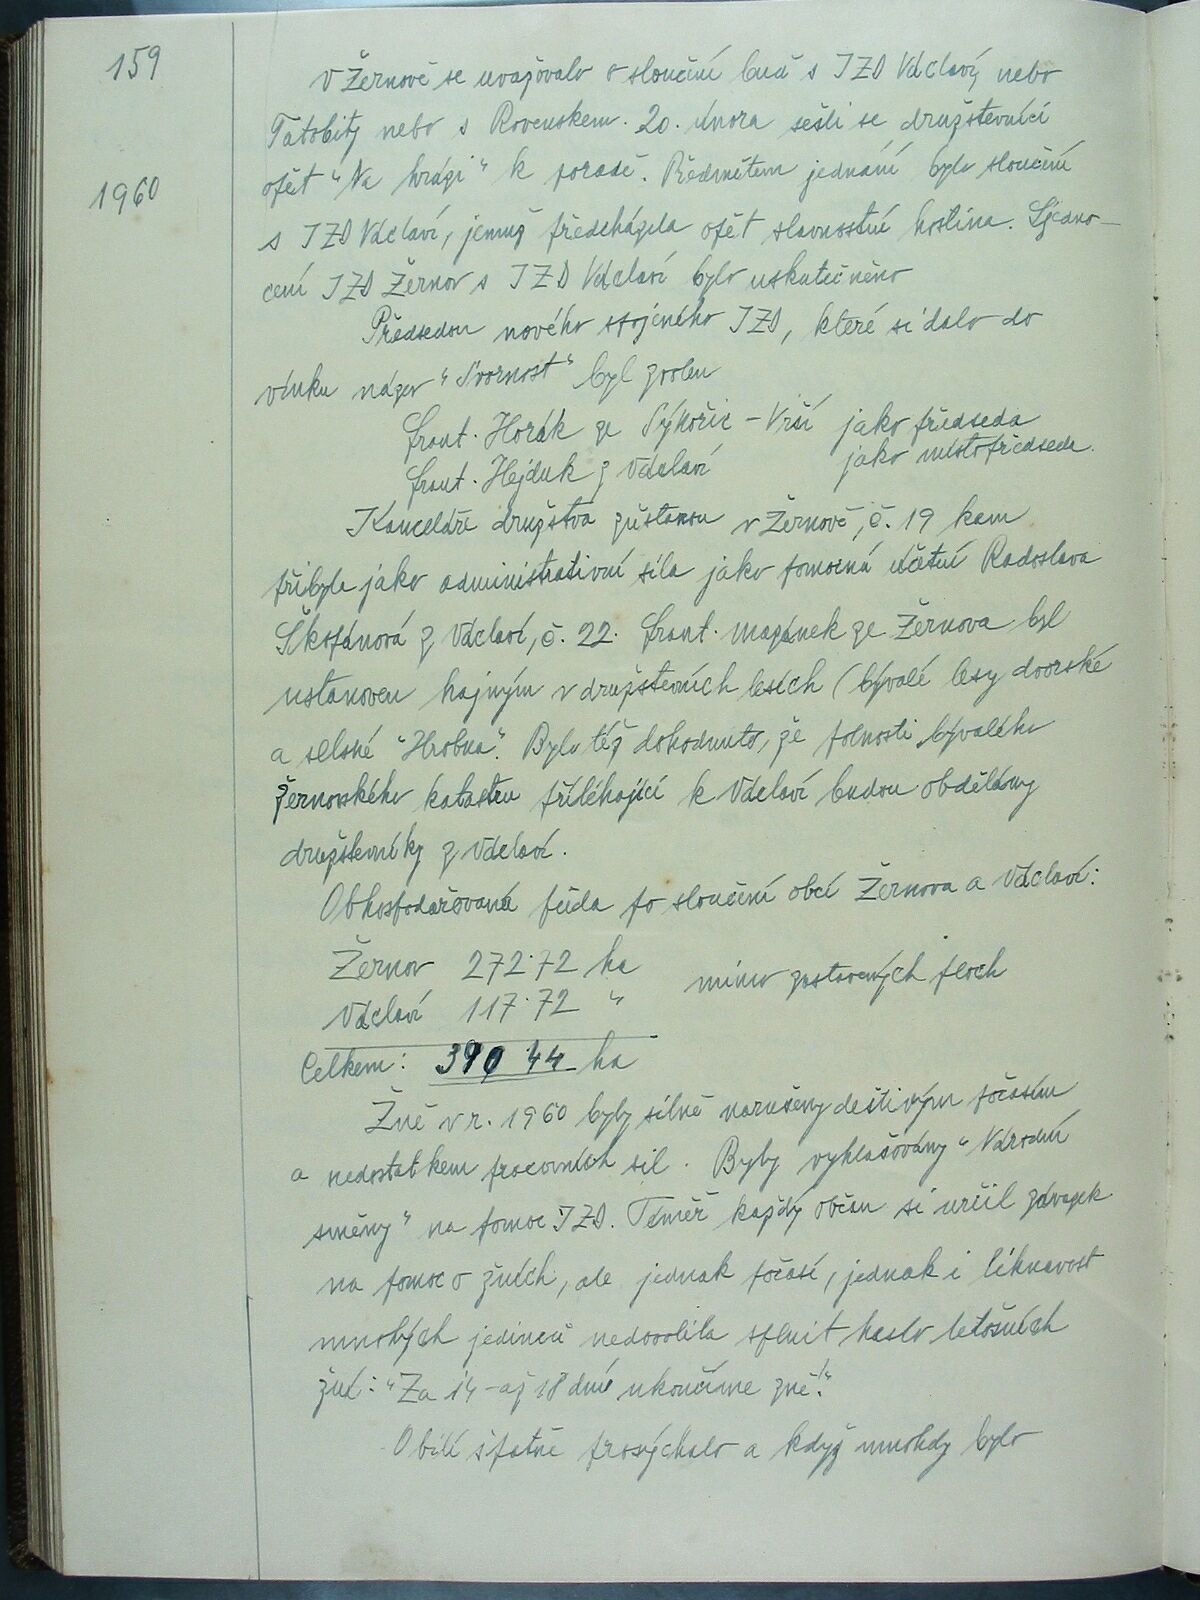 159
V Žernově se uvažovalo o sloučení buď s JZD Václaví, nebo
Tatobity nebo s Rovenskem. 20. února sešli se družstevníci
1960
opět "Na hrázi" k poradě. Předmětem jednání bylo sloučení
s JZD Václaví, jemuž předcházela opět slavnostní hostina. Sjedno-
cení JZD Žernov s JZD Václaví bylo uskutečněno
Předsedou nového spojeného JZD, které si dalo do
vínku název "Svornost" byl zvolen
Frant. Horák ze Sýkořic - Vrší jako předseda
Frant. Hejduk z Václaví jako místopředseda.
Kanceláře družstva zůstanou v Žernově, č. 19 kam
přibyla jako administrativní síla jako pomocná účetní Radoslava
Škofánová z Václaví, č. 22. Frant. Mazánek ze Žernova byl
ustanoven hajným v družstevních lesích (bývalé lesy dvorské
a selské "Hrobka". Bylo též dohodnuto, že polnosti bývalého
žernovského katastru přiléhající k Václaví budou obdělány
družstevníky z Václaví.
Obhospodařovaná půda po sloučení obcí Žernova a Václaví:
Žernov 272.72 ha mimo zastavených ploch
Václaví 117.72 "
Celkem: 390 44 ha
Žně v r. 1960 byly silně narušeny deštivým počasím
a nedostatkem pracovních sil. Byly vyhlašovány "Národní
směny" na pomoc JZD. Téměř každý občan si určil závazek
na pomoc o žních, ale jednak počasí, jednak i liknavost
mnohých jedinců nedovolila splnit heslo letošních
žní: "Za 14 - až 18 dní ukončíme žně!"
Obilí špatně prosýchalo a když mnohdy bylo